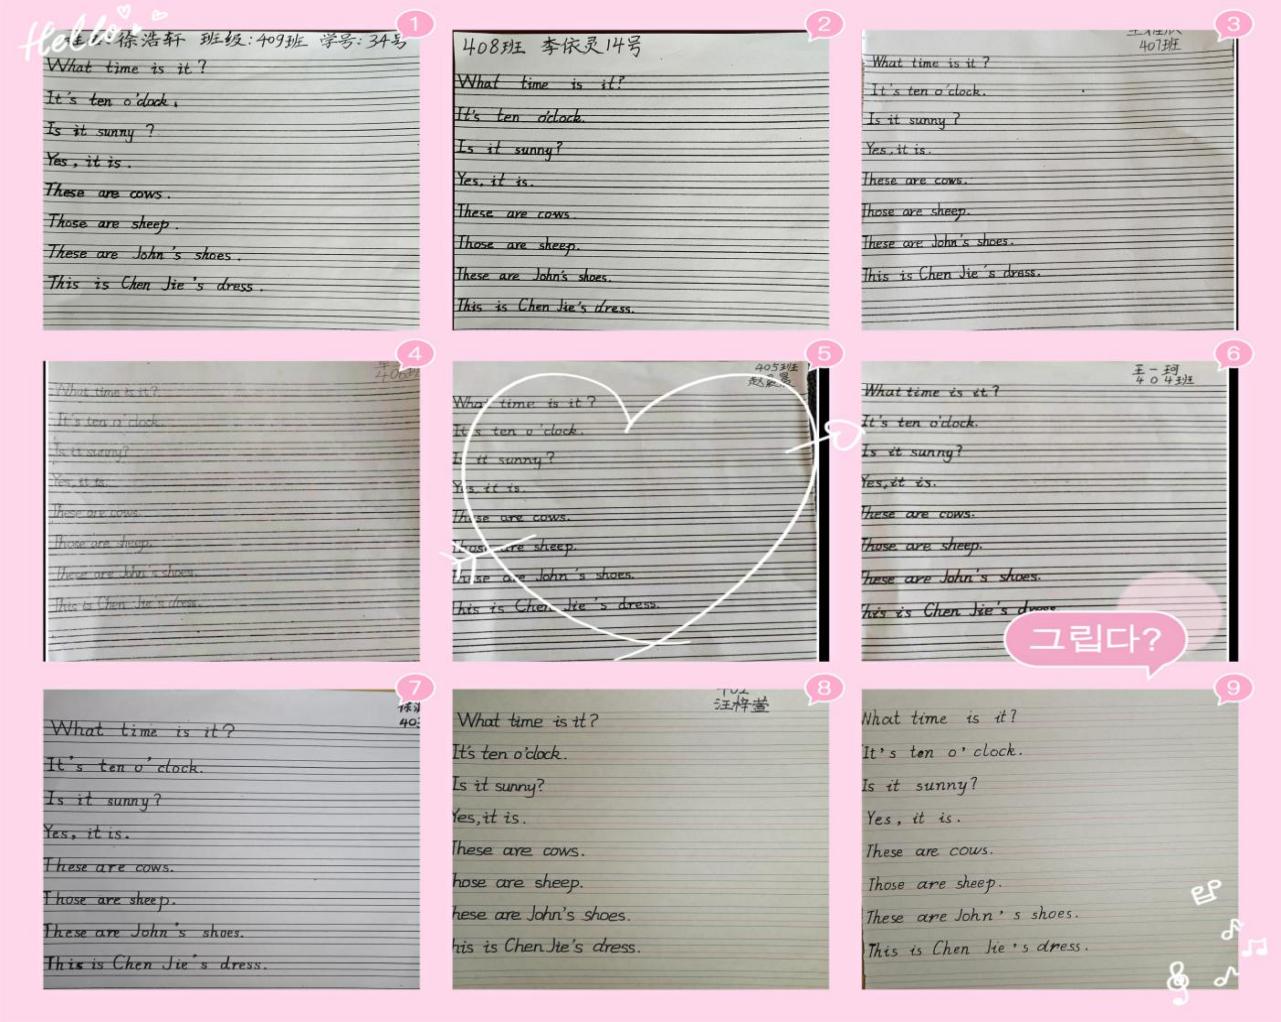 Hello
1
姓名:徐浩轩 班级:409班 学号:34号
What time is it?
It's ten o'clock.
Is it sunny?
Yes, it is.
These are cows.
Those are sheep.
These are John's shoes.
This is Chen Jie's dress.
2
408班 李依灵14号
What time is it?
It's ten o'clock.
Is it sunny?
Yes, it is.
These are cows.
Those are sheep.
These are John's shoes.
This is Chen Jie's dress.
3
407班
What time is it?
It's ten o'clock.
Is it sunny?
Yes, it is.
These are cows.
Those are sheep.
These are John's shoes.
This is Chen Jie's dress.
4
What time is it?
It's ten o'clock.
Is it sunny?
Yes, it is.
These are cows.
Those are sheep.
These are John's shoes.
This is Chen Jie's dress.
5
405班
What time is it?
It's ten o'clock.
Is it sunny?
Yes, it is.
These are cows.
Those are sheep.
These are John's shoes.
This is Chen Jie's dress.
6
王一珂
404班
What time is it?
It's ten o'clock.
Is it sunny?
Yes, it is.
These are cows.
Those are sheep.
These are John's shoes.
This is Chen Jie's dress
그립다?
7
What time is it?
It's ten o'clock.
Is it sunny?
Yes, it is.
These are cows.
Those are sheep.
These are John's shoes.
This is Chen Jie's dress.
8
汪梓萱
What time is it?
It's ten o'clock.
Is it sunny?
Yes, it is.
These are cows.
hose are sheep.
hese are John's shoes.
his is Chen Jie's dress.
9
What time is it?
It's ten o'clock.
Is it sunny?
Yes, it is.
These are cows.
Those are sheep.
These are John's shoes.
This is Chen Jie's dress.